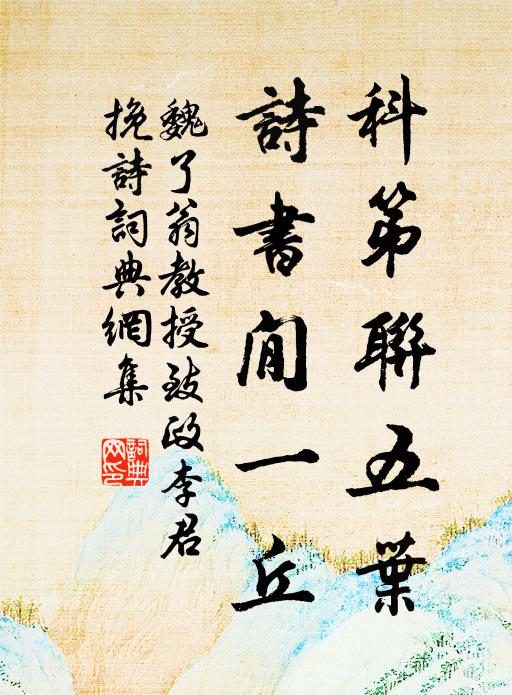 科第聯五葉
詩書閒一丘
魏了翁教授致政李君
挽詩詞典網集
詞典網印